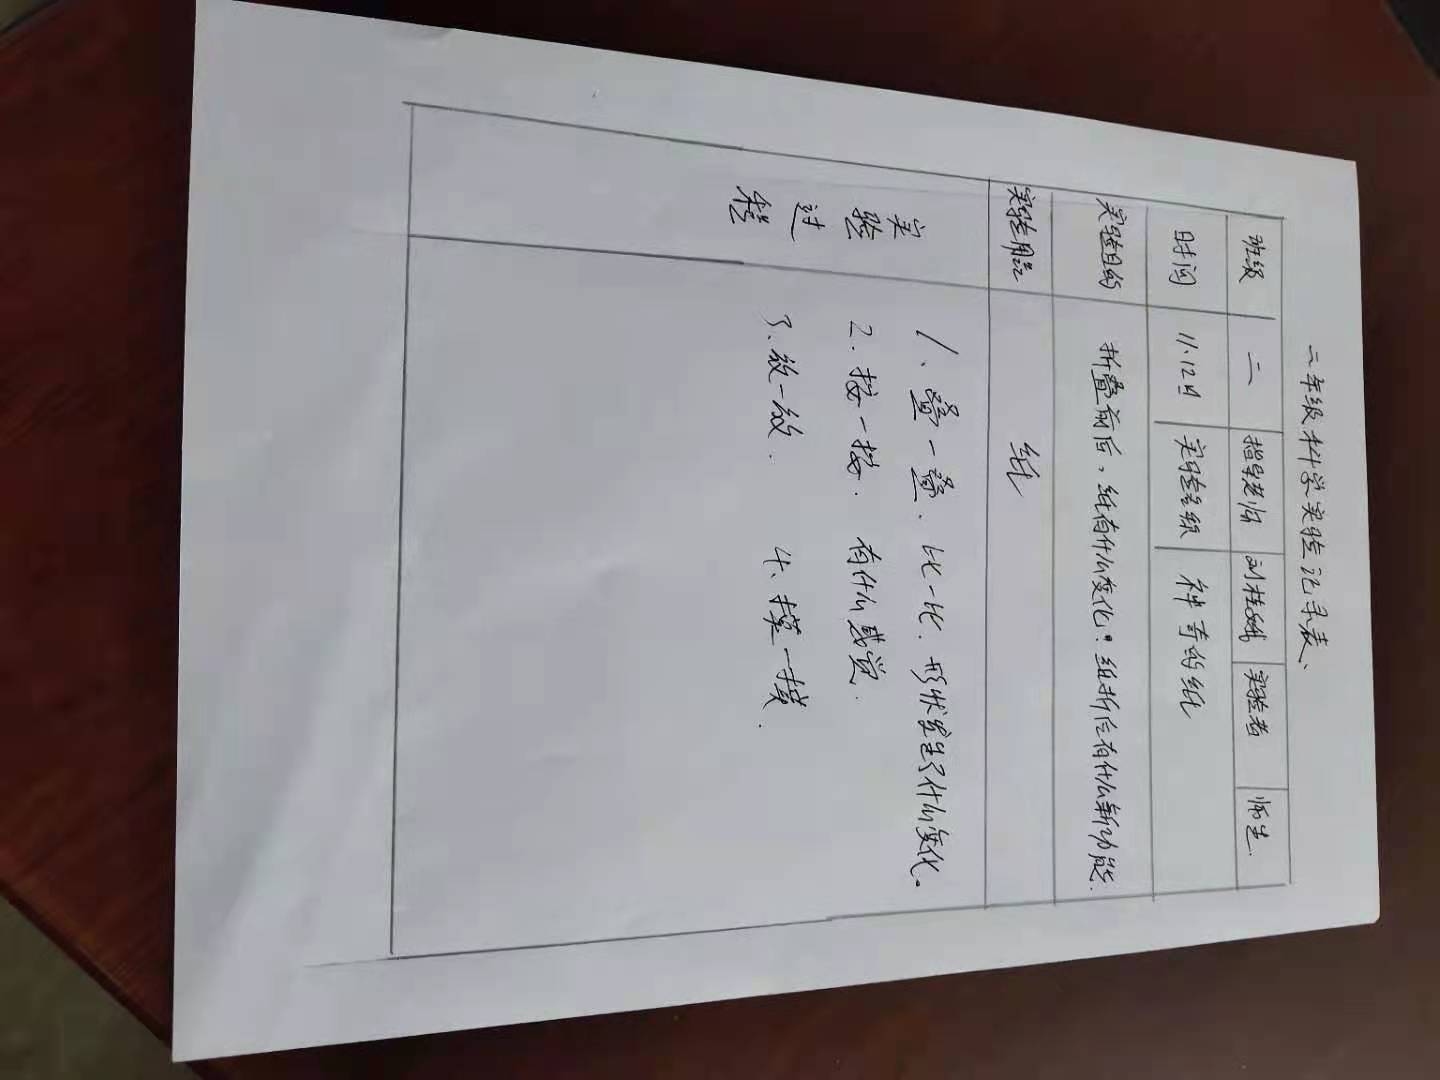 二年级科学实验记录表、
班级 二 指导老师 刘桂娥 实验者 师生.
时间 11.12日 实验名称 神奇的纸
实验目的 折叠前后,纸有什么变化?纸折后有什么新功能.
实验用品 纸
实验过程
1、叠一叠.比一比.形状发生了什么变化。
2.按一按. 有什么感觉.
3、放一放. 4、摸一摸.